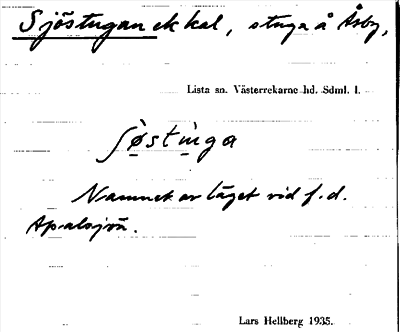 Sjöstugan ek kal, stuga å Åsby,
Lista sn. Västerrekarne hd. Sdml. l.
ʃøstuga
Namnet av läget vid f.d.
Apalsjön.
Lars Hellberg 1935.